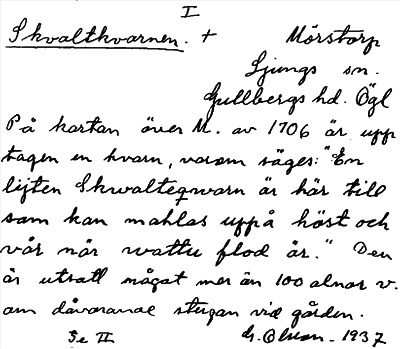 I
Skvaltkvarnen. + Mörstorp
Ljungs sn.
Gullbergs hd. Ögl
På kartan över M. av 1706 är upp
tagen en kvarn, varom säges: "En
lijten Skwalteqwarn är här till
som kan mahlas uppå höst och
vår når wattu flod är." Den
är utsatt något mer än 100 alnar v.
om dåvarande stugan vid gården.
Se II G. Olson - 1937